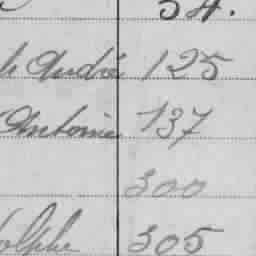 54.
André 125
Antoine 137
300
dolphe 305